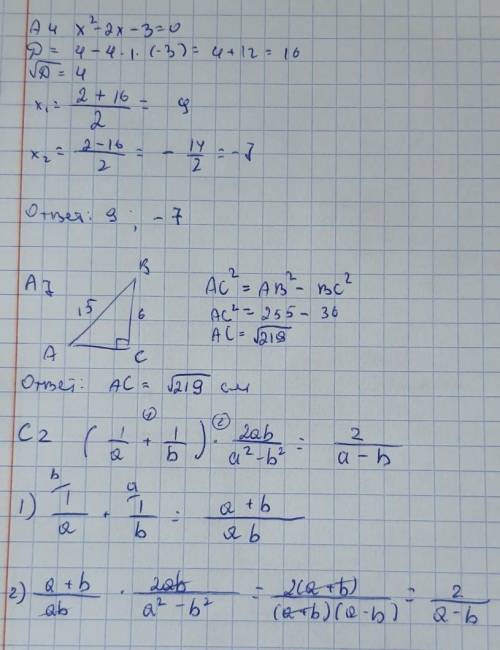 А4 x² - 2x - 3 = 0
D = 4 - 4 · 1 · (-3) = 4 + 12 = 16
√D = 4
x₁ = (2 + 16)/2 = 9
x₂ = (2 - 16)/2 = - 14/2 = -7
Ответ: 9 ; -7
А7
B
15
6
A
C
AC² = AB² - BC²
AC² = 255 - 36
AC = √219
Ответ: AC = √219 см
C2 (1/a + 1/b) · 2ab/(a² - b²) = 2/(a - b)
① ②
1) 1/a + 1/b = (a + b)/ab
b a
2) (a + b)/ab · 2ab/(a² - b²) = 2(a + b)/((a + b)(a - b)) = 2/(a - b)